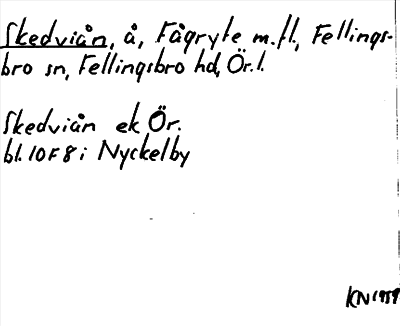 Skedviån, å, Fågryte m.fl., Fellings-
bro sn, Fellingsbro hd, Ör.l.
Skedviån ek Ör.
bl. 10F8i Nyckelby
KN 1959